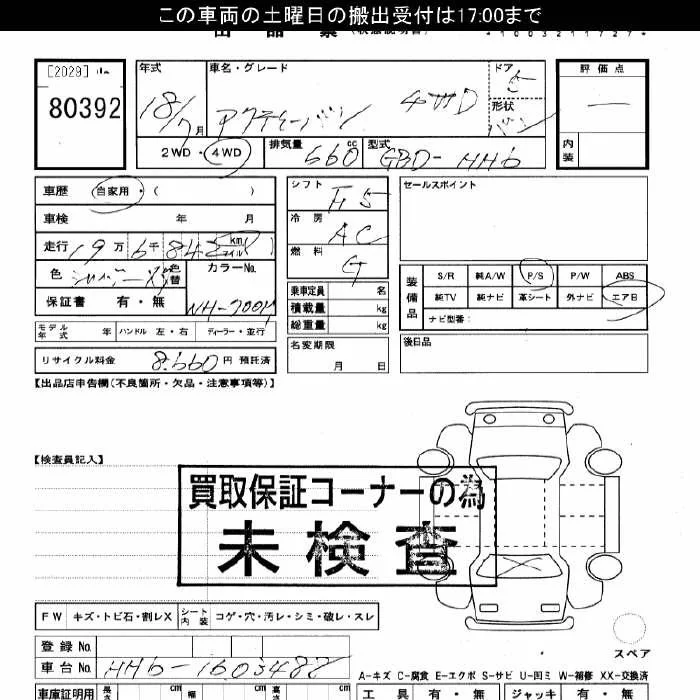 この車両の土曜日の搬出受付は17:00まで
[2029]
80392
年式 車名・グレード ドア 5 評価点
18/7月 アクティーバン 4WD 形状 バン
2WD・4WD 排気量 660 cc 型式 GBD-HH6 内装
車歴 自家用・( )
車検 年 月
走行 19万6千842 km マイル
色 シルバー 色替 カラーNo.
保証書 有・無 NH-700M
モデル年式 年 ハンドル 左・右 ディーラー・並行
リサイクル料金 8,660円 預託済
シフト F5
冷房 AC
燃料 G
乗車定員 名
積載量 kg
総重量 kg
名変期限
月 日
セールスポイント
装備品 S/R 純A/W P/S P/W ABS
純TV 純ナビ 革シート 外ナビ エアB
ナビ型番:
後日品
【出品店申告欄(不良箇所・欠品・注意事項等)】
【検査員記入】
買取保証コーナーの為
未検査
FW キズ・トビ石・割レX シート内装 コゲ・穴・汚レ・シミ・破レ・スレ
スペア
登録No.
車台No. HH6-1603482
A-キズ C-腐食 E-エクボ S-サビ U-凹ミ W-補修 XX-交換済
車庫証明用 長さ cm 幅 cm 高さ cm 工具 有・無 ジャッキ 有・無